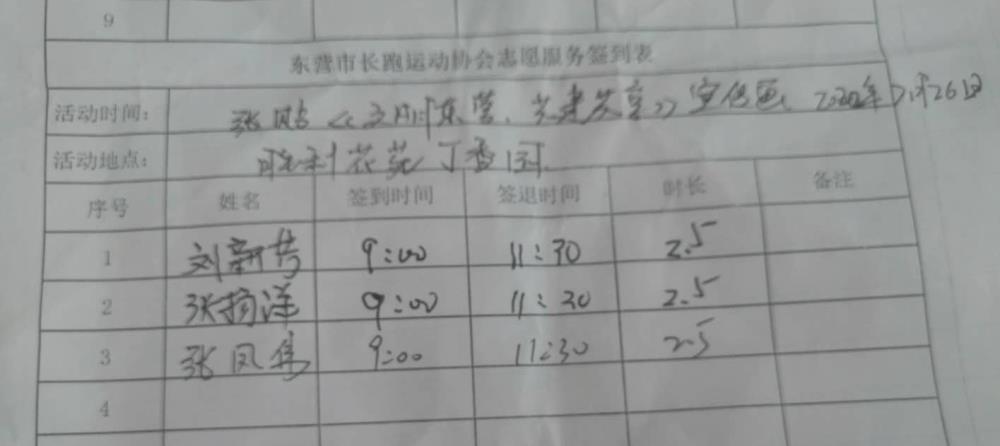 9
东营市长跑运动协会志愿服务签到表
活动时间: 张贴《文明东营、共建共享》宣传画、2020年7月26日
活动地点: 胜利花苑丁香园
序号 姓名 签到时间 签退时间 时长 备注
1 刘新芳 9:00 11:30 2.5
2 张杨洋 9:00 11:30 2.5
3 张凤 9:00 11:30 2.5
4